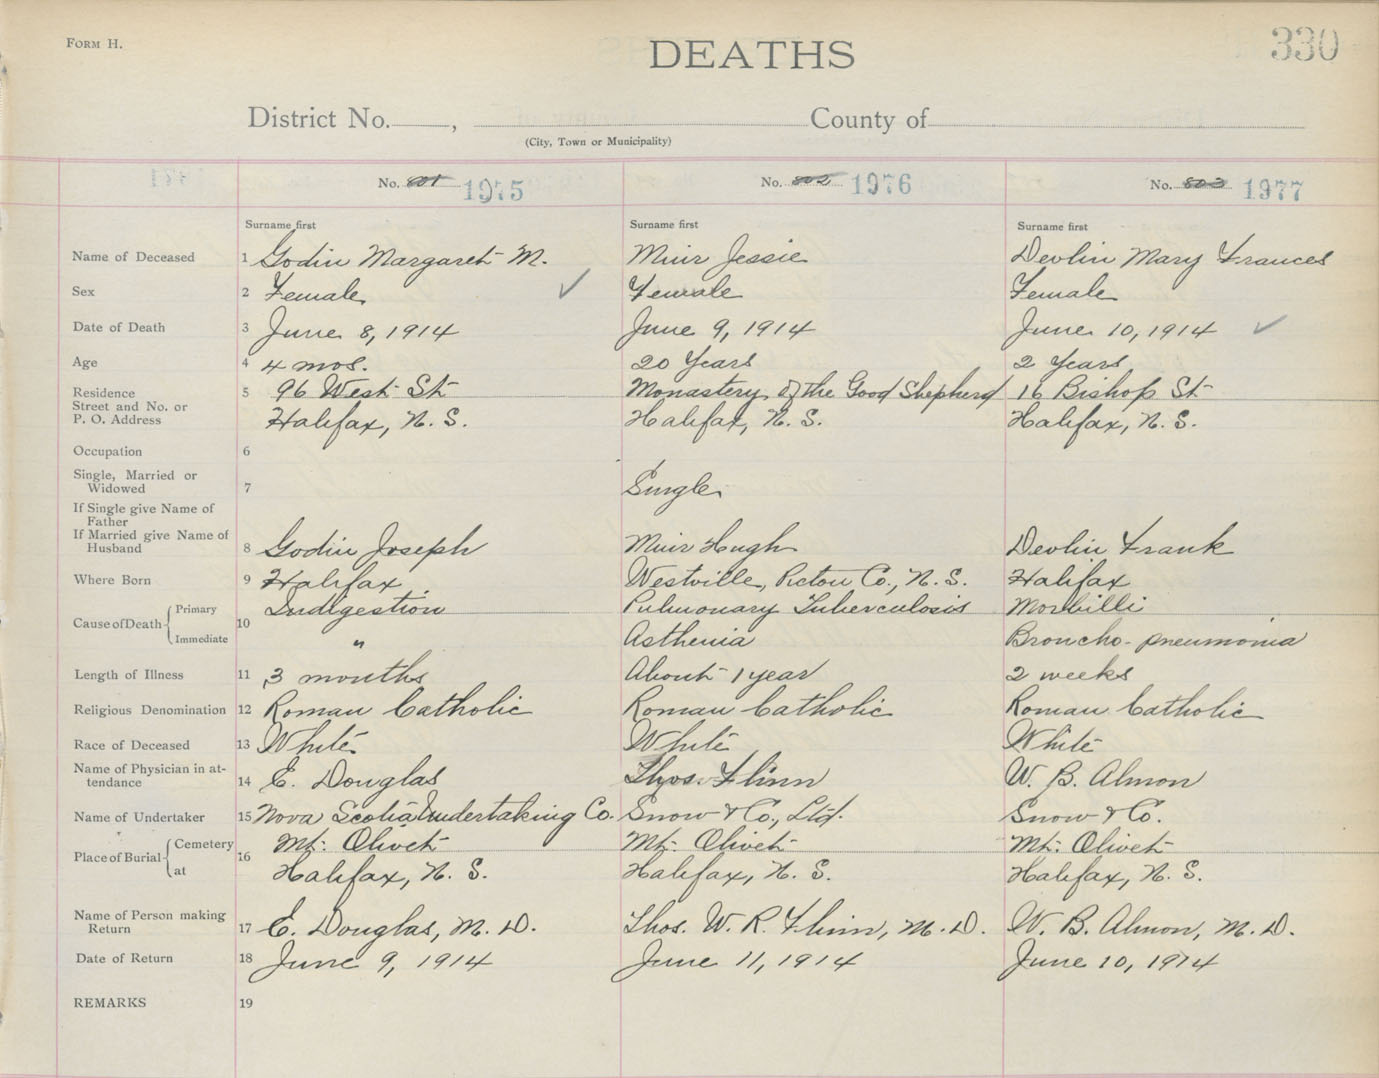 FORM H.
330
DEATHS
District No. , County of
(City, Town or Municipality)
No. 801 1975
No. 802 1976
No. 803 1977
Surname first
Surname first
Surname first
Name of Deceased 1 Godin Margaret M. Muir Jessie Devlin Mary Frances
Sex 2 Female ✓ Female Female
Date of Death 3 June 8, 1914 June 9, 1914 June 10, 1914 ✓
Age 4 4 mos. 20 Years 2 Years
Residence 5 96 West St Monastery of the Good Shepherd 16 Bishop St
Street and No. or
P. O. Address Halifax, N. S. Halifax, N. S. Halifax, N. S.
Occupation 6
Single, Married or
Widowed 7 Single
If Single give Name of
Father
If Married give Name of
Husband 8 Godin Joseph Muir Hugh Devlin Frank
Where Born 9 Halifax Westville, Pictou Co., N. S. Halifax
Cause of Death 10 Primary Indigestion Pulmonary Tuberculosis Morbilli
Immediate " Asthenia Broncho-pneumonia
Length of Illness 11 3 months About 1 year 2 weeks
Religious Denomination 12 Roman Catholic Roman Catholic Roman Catholic
Race of Deceased 13 White White White
Name of Physician in at-
tendance 14 E. Douglas Thos. Flinn W. B. Almon
Name of Undertaker 15 Nova Scotia Undertaking Co. Snow & Co., Ltd. Snow & Co.
Place of Burial 16 Cemetery Mt. Olivet Mt. Olivet Mt. Olivet
at Halifax, N. S. Halifax, N. S. Halifax, N. S.
Name of Person making
Return 17 E. Douglas, M. D. Thos. W. R. Flinn, M. D. W. B. Almon, M. D.
Date of Return 18 June 9, 1914 June 11, 1914 June 10, 1914
REMARKS 19